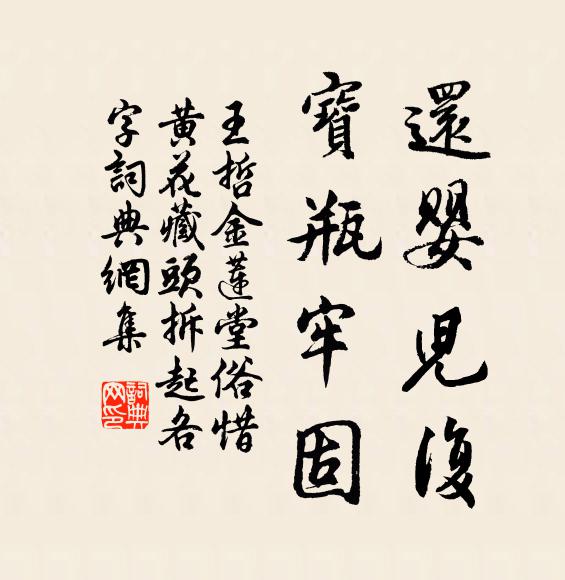 還嬰兒復
寶瓶牢固
王哲金蓮堂俗惜
黄花藏頭拆起各
字詞典網集
詞典網印